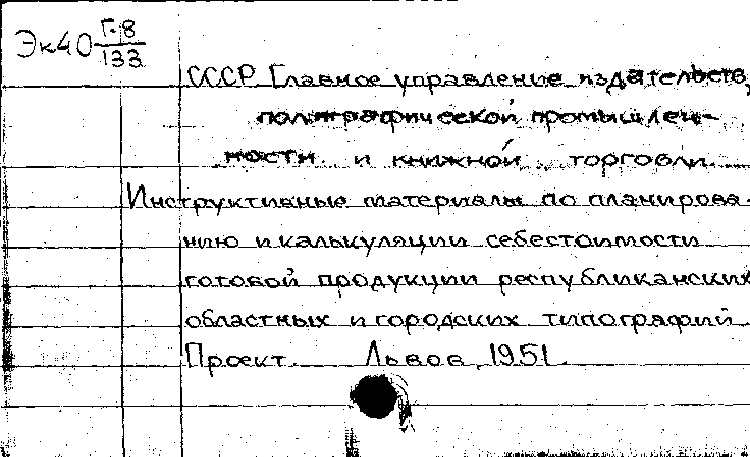 Эк40 Г-8/133
СССР Главное управление издательств,
полиграфической промышлен-
ности и книжной торговли.
Инструктивные материалы по планирова-
нию и калькуляции себестоимости
готовой продукции республиканских
областных и городских типографий.
Проект. Львов, 1951.